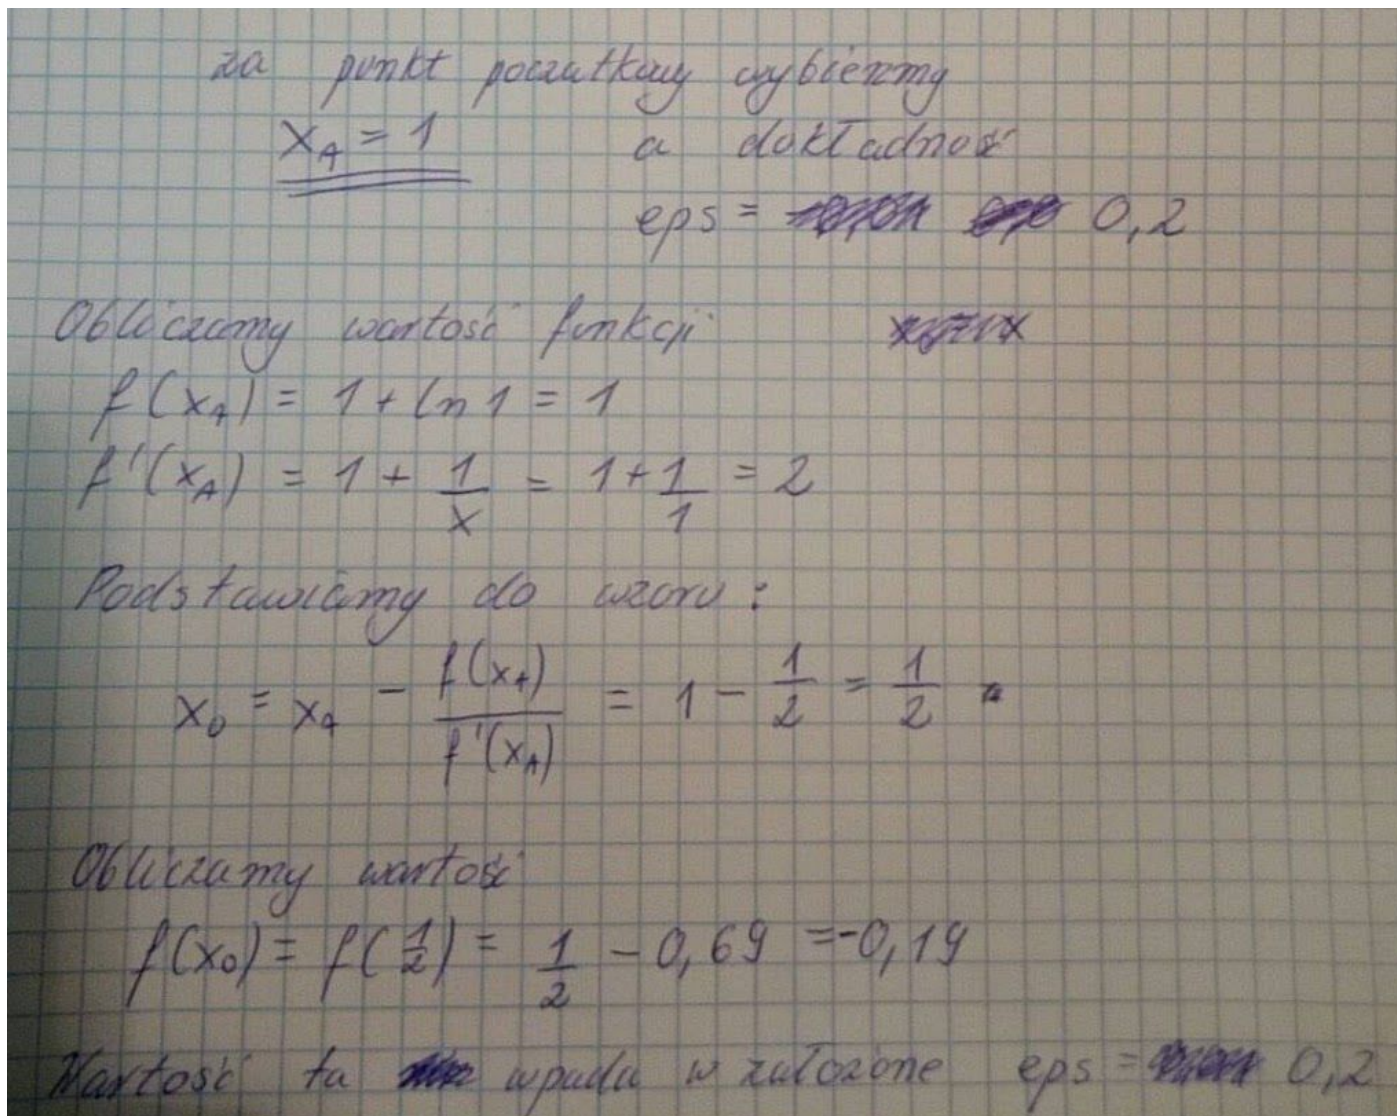 za punkt początkowy wybierzmy
x_A = 1 a dokładność
eps = 0,2
Obliczamy wartość funkcji
f(x_A) = 1 + ln 1 = 1
f'(x_A) = 1 + 1/x = 1 + 1/1 = 2
Podstawiamy do wzoru :
x_0 = x_A - f(x_A)/f'(x_A) = 1 - 1/2 = 1/2
Obliczamy wartość
f(x_0) = f(1/2) = 1/2 - 0,69 = -0,19
Wartość ta wpada w założone eps = 0,2